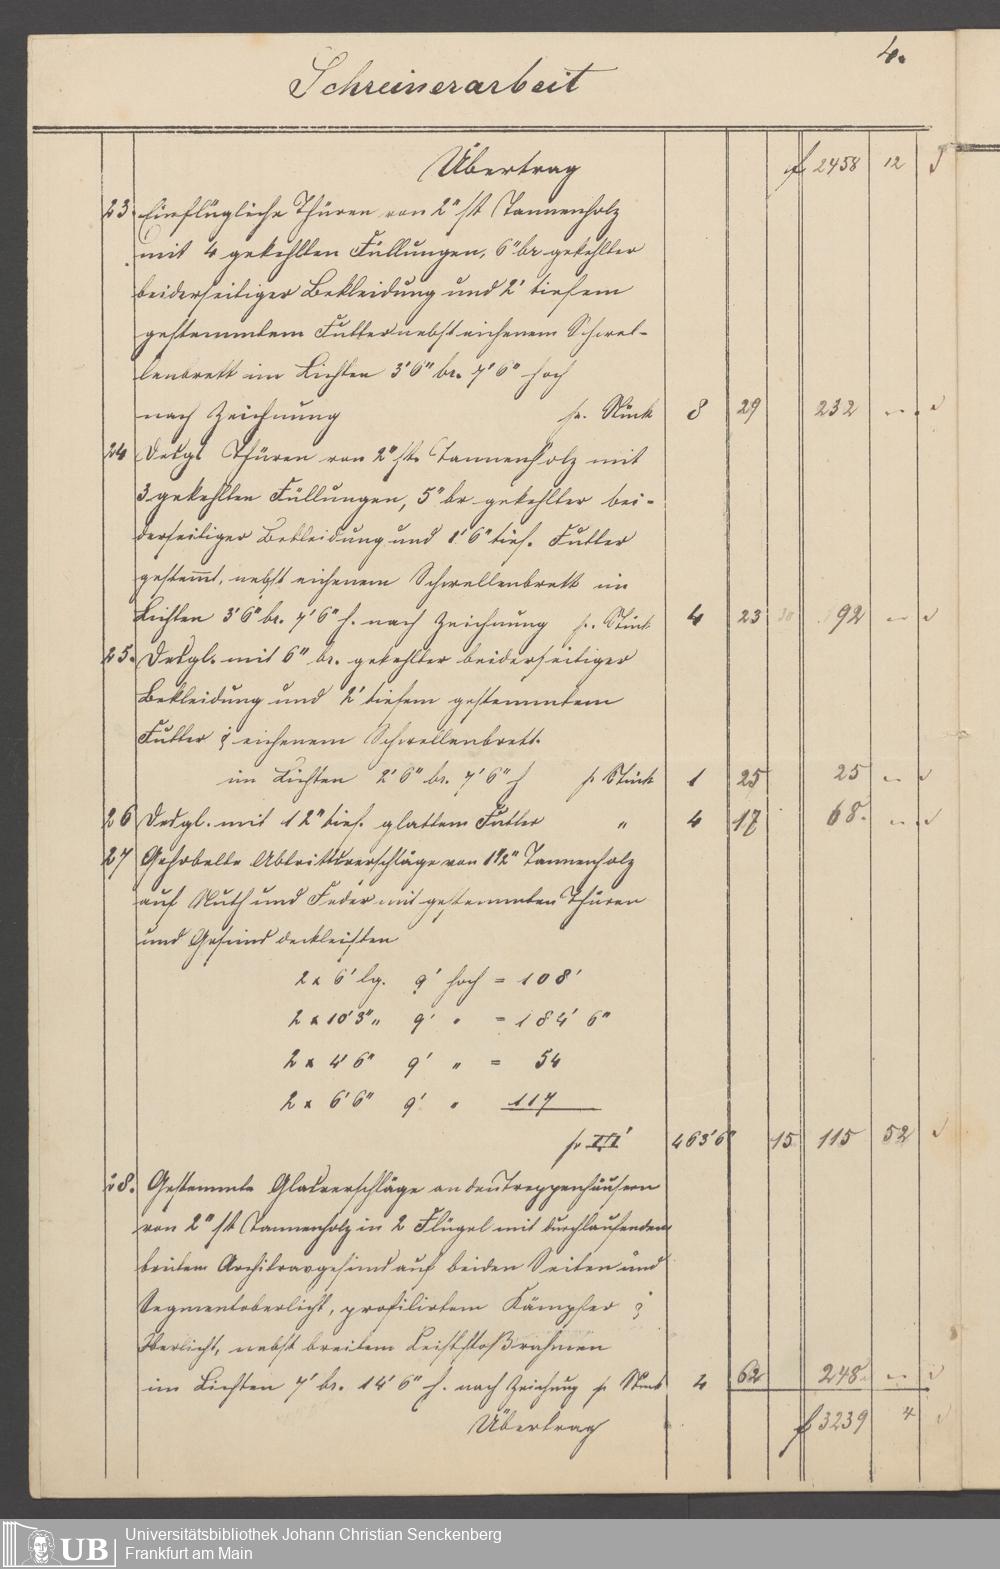 4.
Schreinerarbeit
Übertrag f 2458 12
23. Einflüglige Thüren von 2" stk Tannenholz
mit 4 gekehlten Füllungen, 6" br gekehlter
beiderseitiger Bekleidung und 2' tiefem
gestemmtem Futter nebst eichenem Schwel-
lenbrett im Lichten 3'6" br. 7'6" hoch
nach Zeichnung pr. Stück 8 29 232 "
24 Desgl Thüren von 2" stk. Tannenholz mit
3 gekehlten Füllungen, 5" br gekehlter bei-
derseitiger Bekleidung und 1' 6" tief. Futter
gestemmt, nebst eichenem Schwellenbrett im
Lichten 3'6" br. 7'6" h. nach Zeichnung pr. Stück 4 23 92 "
25. Desgl. mit 6" br. gekehlter beiderseitiger
Bekleidung und 2' tiefem gestemmtem
Futter & eichenem Schwellenbrett.
im Lichten 2'6" br. 7'6" h pr Stück 1 25 25 "
26 Desgl. mit 12" tief. glattem Futter " 4 17 68. "
27 Gehobelte Abtrittsverschläge von 1 1/2" Tannenholz
auf Nuth und Feder mit gestemmten Thüren
und Gesims deckleisten
2 x 6' lg. 9' hoch = 108'
2 x 10'3" " 9' " = 184' 6"
2 x 4'6" 9' " = 54
2 x 6'6" 9' " 117
pr □' 463'6" 15 115 52
28. Gestemmte Glasverschläge an den Treppenhäusern
von 2" stk Tannenholz in 2 Flügel mit durchlaufendem
breitem Architravgesims auf beiden Seiten und
Segmentoberlicht, profilirtem Kämpfer &
Oberlicht, nebst breitem rahmen
im Lichten 7' br. 14' 6" h. nach Zeichnung pr Stück 4 62 248. "
Übertrag f 3239 4
UB
Universitätsbibliothek Johann Christian Senckenberg
Frankfurt am Main